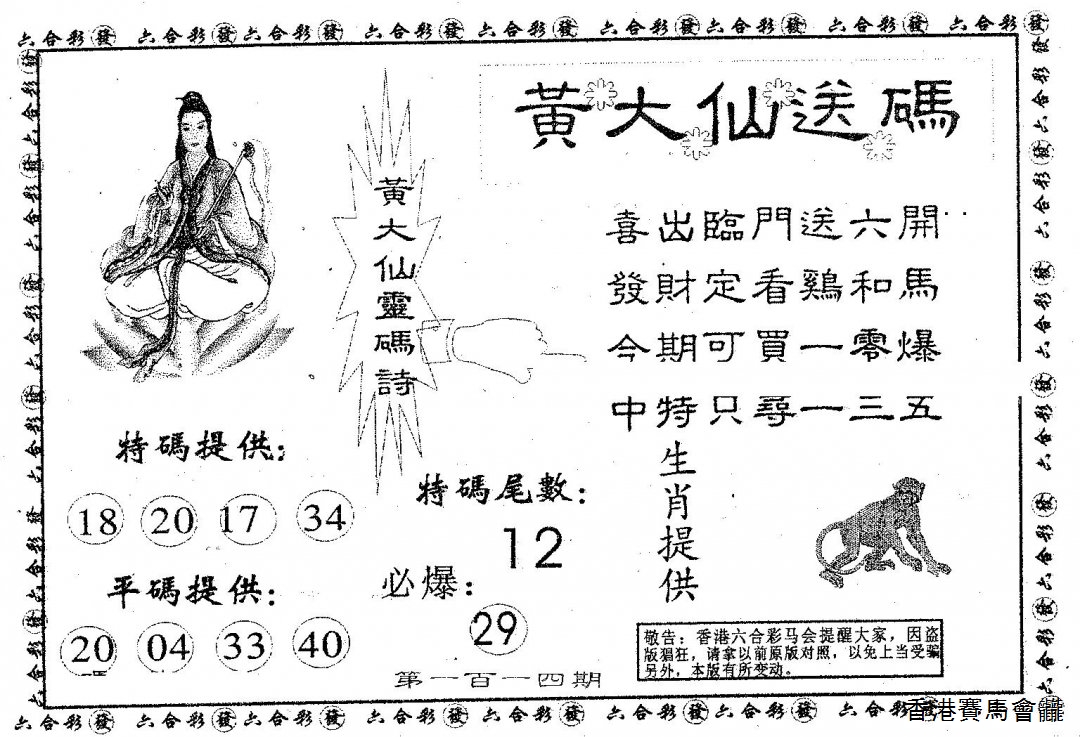 六合彩發 六合彩發 六合彩發 六合彩發 六合彩發 六合彩發 六合彩發 六合彩發 六合彩發
黃大仙送碼
黃大仙靈碼詩
喜出臨門送六開
發財定看鷄和馬
今期可買一零爆
中特只尋一三五
特碼提供:
18 20 17 34
平碼提供:
20 04 33 40
特碼尾數:
12
必爆:
29
生肖提供
敬告: 香港六合彩马会提醒大家, 因盗
版猖狂, 请拿以前原版对照, 以免上当受骗
另外, 本版有所变动。
第一百一四期
六合彩發 六合彩發 六合彩發 六合彩發 六合彩發 六合彩發 六合彩發 六合彩
香港賽馬會